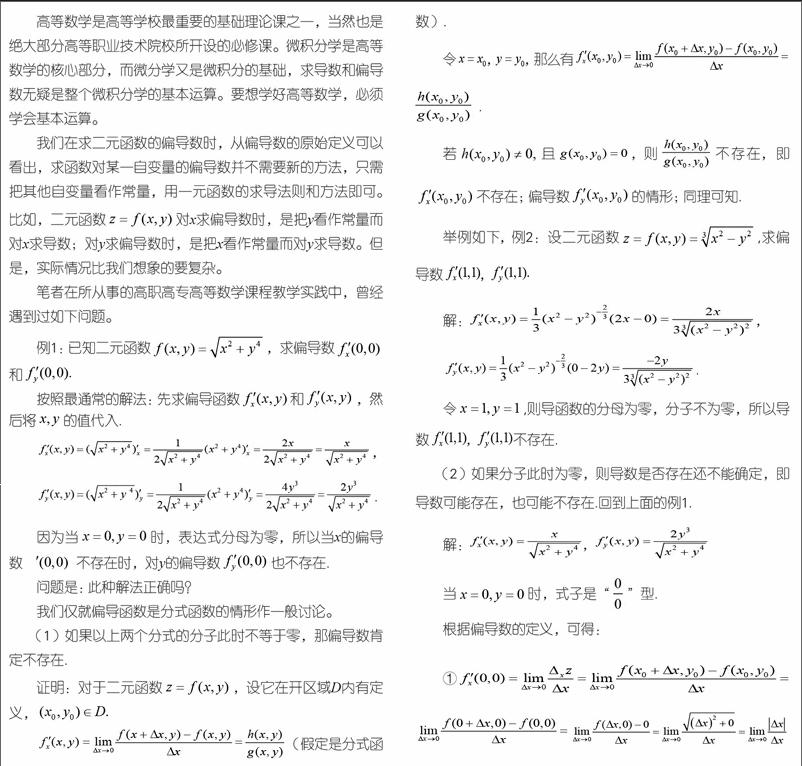 高等数学是高等学校最重要的基础理论课之一，当然也是
绝大部分高等职业技术院校所开设的必修课。微积分学是高等
数学的核心部分，而微分学又是微积分的基础，求导数和偏导
数无疑是整个微积分学的基本运算。要想学好高等数学，必须
学会基本运算。
我们在求二元函数的偏导数时，从偏导数的原始定义可以
看出，求函数对某一自变量的偏导数并不需要新的方法，只需
把其他自变量看作常量，用一元函数的求导法则和方法即可。
比如，二元函数 z = f(x,y) 对x求偏导数时，是把y看作常量而
对x求导数；对y求偏导数时，是把x看作常量而对y求导数。但
是，实际情况比我们想象的要复杂。
笔者在所从事的高职高专高等数学课程教学实践中，曾经
遇到过如下问题。
例1：已知二元函数 f(x,y) = √(x²+y⁴)，求偏导数 fₓ′(0,0)
和 f_y′(0,0).
按照最通常的解法：先求偏导函数 fₓ′(x,y) 和 f_y′(x,y)，然
后将 x,y 的值代入.
fₓ′(x,y) = (√(x²+y⁴))′ₓ = 1/(2√(x²+y⁴)) (x²+y⁴)′ₓ = 2x/(2√(x²+y⁴)) = x/√(x²+y⁴)，
f_y′(x,y) = (√(x²+y⁴))′_y = 1/(2√(x²+y⁴)) (x²+y⁴)′_y = 4y³/(2√(x²+y⁴)) = 2y³/√(x²+y⁴).
因为当 x = 0, y = 0 时，表达式分母为零，所以当x的偏导
数 ′(0,0) 不存在时，对y的偏导数 f_y′(0,0) 也不存在.
问题是：此种解法正确吗？
我们仅就偏导函数是分式函数的情形作一般讨论。
（1）如果以上两个分式的分子此时不等于零，那偏导数肯
定不存在.
证明：对于二元函数 z = f(x,y)，设它在开区域D内有定
义，(x₀,y₀)∈D.
fₓ′(x,y) = lim_{Δx→0} (f(x+Δx,y) − f(x,y))/Δx = h(x,y)/g(x,y)（假定是分式函
数）.
令 x = x₀, y = y₀, 那么有 fₓ′(x₀,y₀) = lim_{Δx→0} (f(x₀+Δx,y₀) − f(x₀,y₀))/Δx =
h(x₀,y₀)/g(x₀,y₀).
若 h(x₀,y₀) ≠ 0, 且 g(x₀,y₀) = 0，则 h(x₀,y₀)/g(x₀,y₀) 不存在，即
fₓ′(x₀,y₀) 不存在；偏导数 f_y′(x₀,y₀) 的情形；同理可知.
举例如下，例2：设二元函数 z = f(x,y) = ∛(x²−y²)，求偏
导数 fₓ′(1,1)，f_y′(1,1).
解：fₓ′(x,y) = 1/3 (x²−y²)^(−2/3) (2x−0) = 2x/(3∛((x²−y²)²))，
f_y′(x,y) = 1/3 (x²−y²)^(−2/3) (0−2y) = −2y/(3∛((x²−y²)²)).
令 x = 1, y = 1 ,则导函数的分母为零，分子不为零，所以导
数 fₓ′(1,1)，f_y′(1,1)不存在.
（2）如果分子此时为零，则导数是否存在还不能确定，即
导数可能存在，也可能不存在.回到上面的例1.
解：fₓ′(x,y) = x/√(x²+y⁴)，f_y′(x,y) = 2y³/√(x²+y⁴)
当 x = 0, y = 0 时，式子是“0/0”型.
根据偏导数的定义，可得：
① fₓ′(0,0) = lim_{Δx→0} Δₓz/Δx = lim_{Δx→0} (f(x₀+Δx,y₀) − f(x₀,y₀))/Δx =
lim_{Δx→0} (f(0+Δx,0) − f(0,0))/Δx = lim_{Δx→0} (f(Δx,0) − 0)/Δx = lim_{Δx→0} √((Δx)²+0)/Δx = lim_{Δx→0} |Δx|/Δx